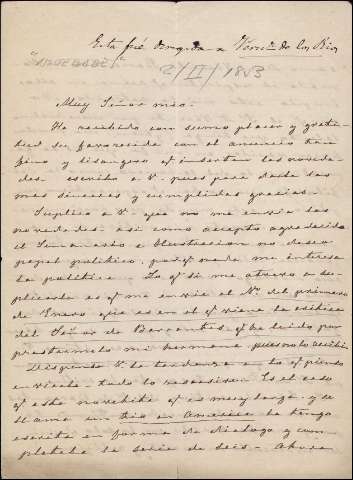 Esta fué dirigida a Fern.do de los Rios
2/II/1883
Muy Señor mio.
He recibido con sumo placer y grati-
tud su favorecida con el anuncio tan
fino y lisongero q.e insertan las noveda-
des. escribo a V. pues para darle las
mas sinceras y cumplidas gracias.
Suplico a V. que no me envie las
novedades. asi como acepto agradecida
el Semanario e Illustracion no deseo
papel politico, porq.e nada me interesa
la politica. Lo q.e si me atrevo a su-
plicarle es q.e me envie el N.o del primero
de Enero que es en el q.e viene la critica
del Señor de Barrantes, q.e he leido por
prestarmelo mi hermana
Dispense V. la tardanza en lo q.e pienso
enviarle. todo lo
Es el caso
q.e esta novelita q.e es muy larga. y se
llama un tio en America la tengo
escrita en forma de dialogo y com-
pletaba la serie de seis. Ahora